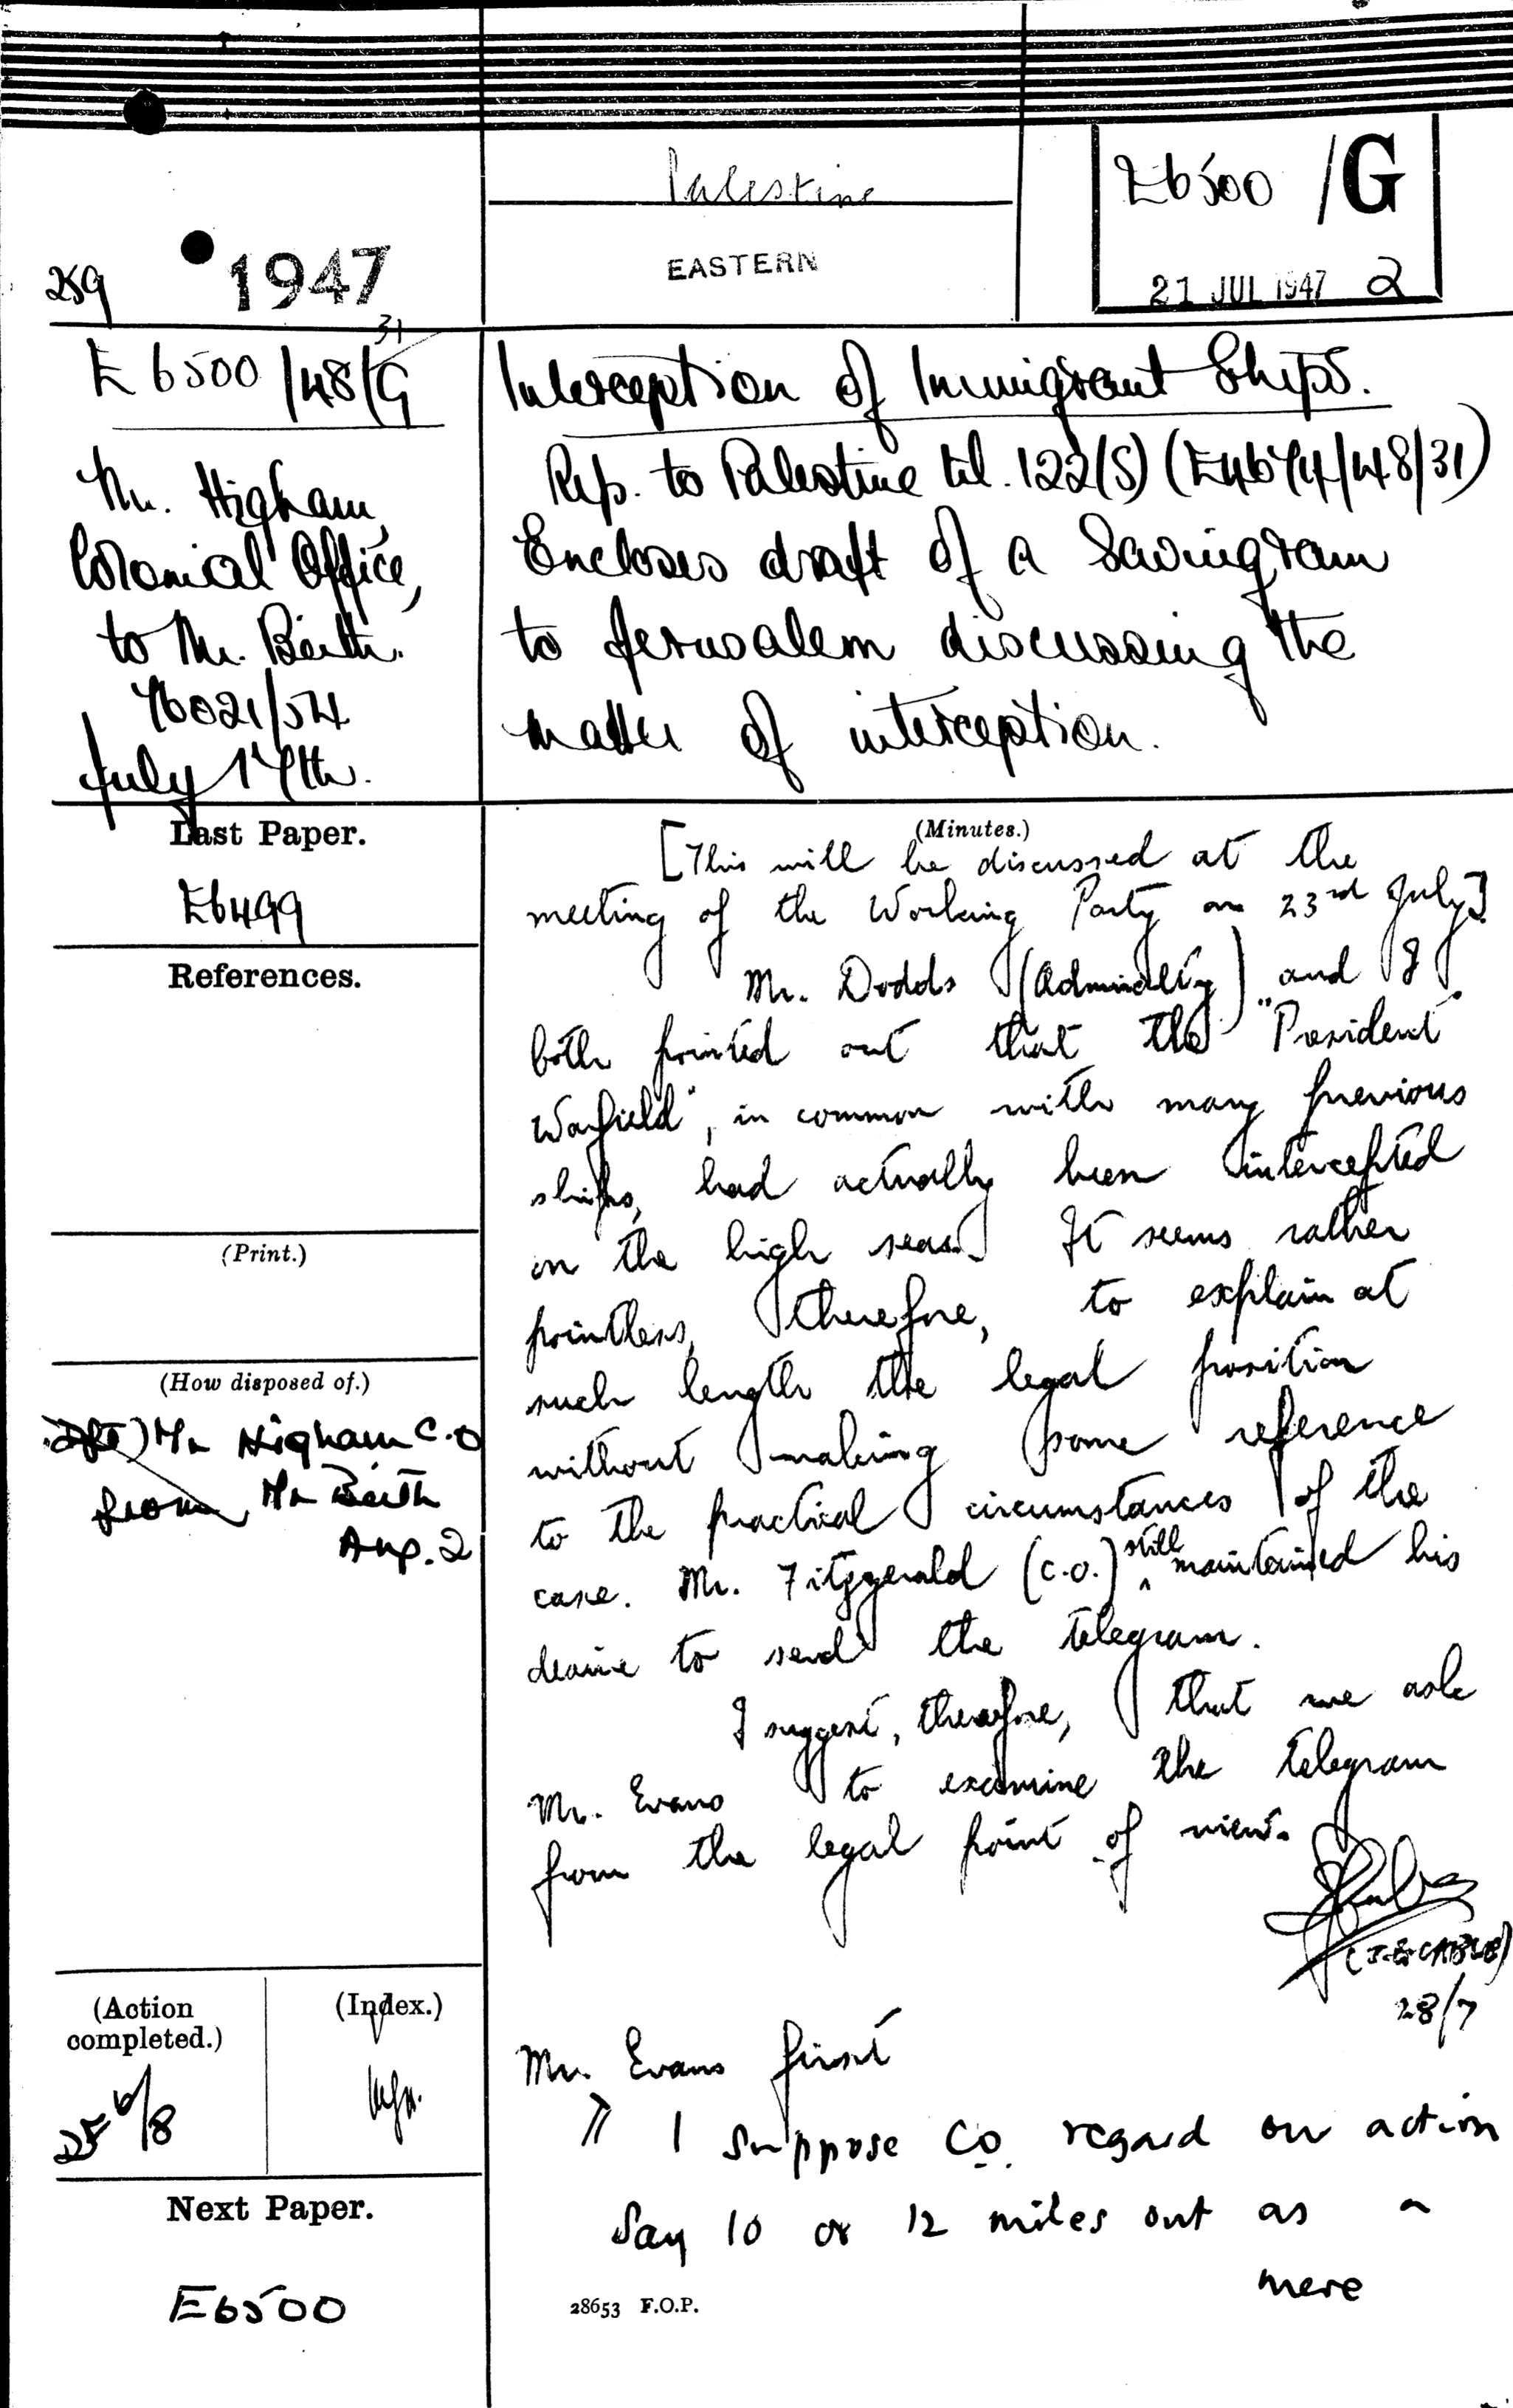 Palestine
E6500 /G
EASTERN
259
1947
21 JUL 1947 2
31
E 6500/48/G
Interception of Immigrant Ships.
Mr. Higham,
Colonial Office,
to Mr. Beith.
76021/54
July 17th.
Rep. to Palestine tel. 122(S) (E4674/48/31)
Encloses draft of a Savingram
to Jerusalem discussing the
matter of interception.
Last Paper.
E6499
References.
(Print.)
(How disposed of.)
Dft) Mr Higham C.O
from Mr Beith
Aug. 2
(Action completed.)
(Index.)
6/8
Next Paper.
E6500
(Minutes.)
[This will be discussed at the
meeting of the Working Party on 23rd July]
Mr. Dodds (Admiralty) and I
both pointed out that the "President
Warfield", in common with many previous
ships, had actually been intercepted
on the high seas. It seems rather
pointless, therefore, to explain at
such length the legal position
without making some reference
to the practical circumstances of the
case. Mr. Fitzgerald (C.O.) still maintained his
desire to send the telegram.
I suggest, therefore, that we ask
Mr. Evans to examine the telegram
from the legal point of view.
(J.E. CABLE)
28/7
Mr. Evans first
I suppose CO. regard our action
say 10 or 12 miles out as a
mere
28653 F.O.P.